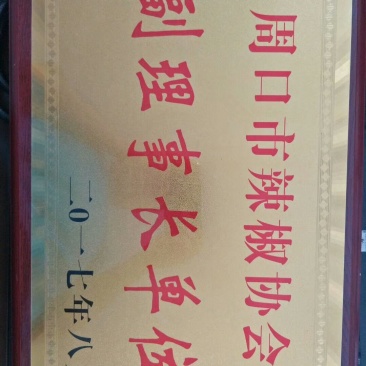 周口市辣椒协会
副理事长单位
二〇一七年八